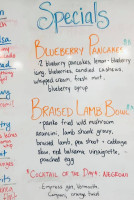 Specials
Blueberry Pancakes
- 2 blueberry pancakes, lemon - blueberry
curd, blueberries, candied cashews,
whipped cream, fresh mint,
blueberry syrup
Braised Lamb Bowl
- panko fried wild mushroom
arancini, lamb shank gravy,
braised lamb, pea shoot - cabbage
slaw, red balsamic vinaigrette,
poached egg
Cocktail of the Day: Negroni
Empress gin, Vermouth,
Campari, orange twist